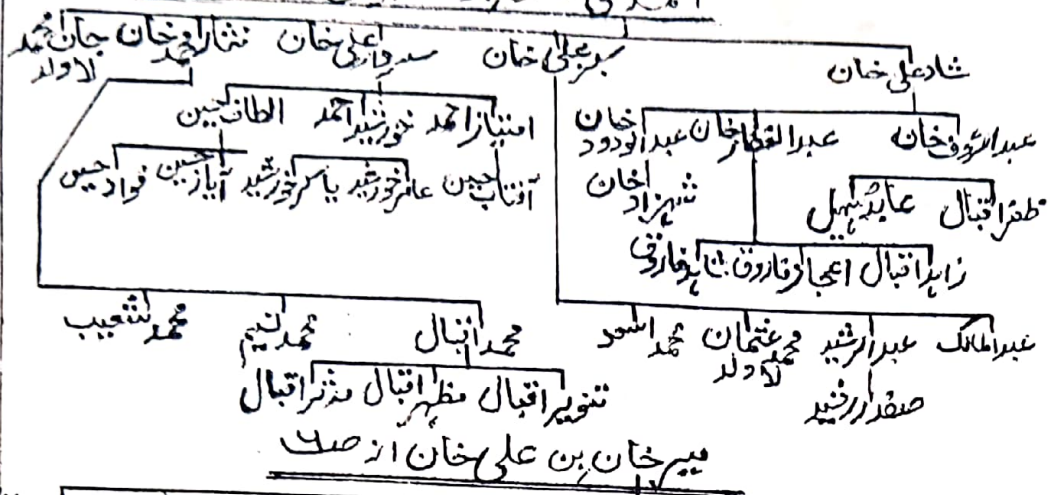 شاد علی خان ببر علی خان سردار علی خان نثار محمد خان جان محمد لاولد
عبدالرؤف خان عبدالغفار خان عبدالودود خان امتیاز احمد خورشید احمد الطاف حسین
ظفر اقبال عابد سہیل شہزاد خان آفتاب حسین عامر خورشید یاسر خورشید آیاز حسین فواد حسین
زاہد اقبال اعجاز فاروق شاہد فاروق
عبدالمالک عبدالرشید محمد عثمان لاولد محمد اسعد محمد اقبال محمد نسیم محمد شعیب
صفدر رشید تنویر اقبال مظہر اقبال مدثر اقبال
میر خان بن علی خان از ص